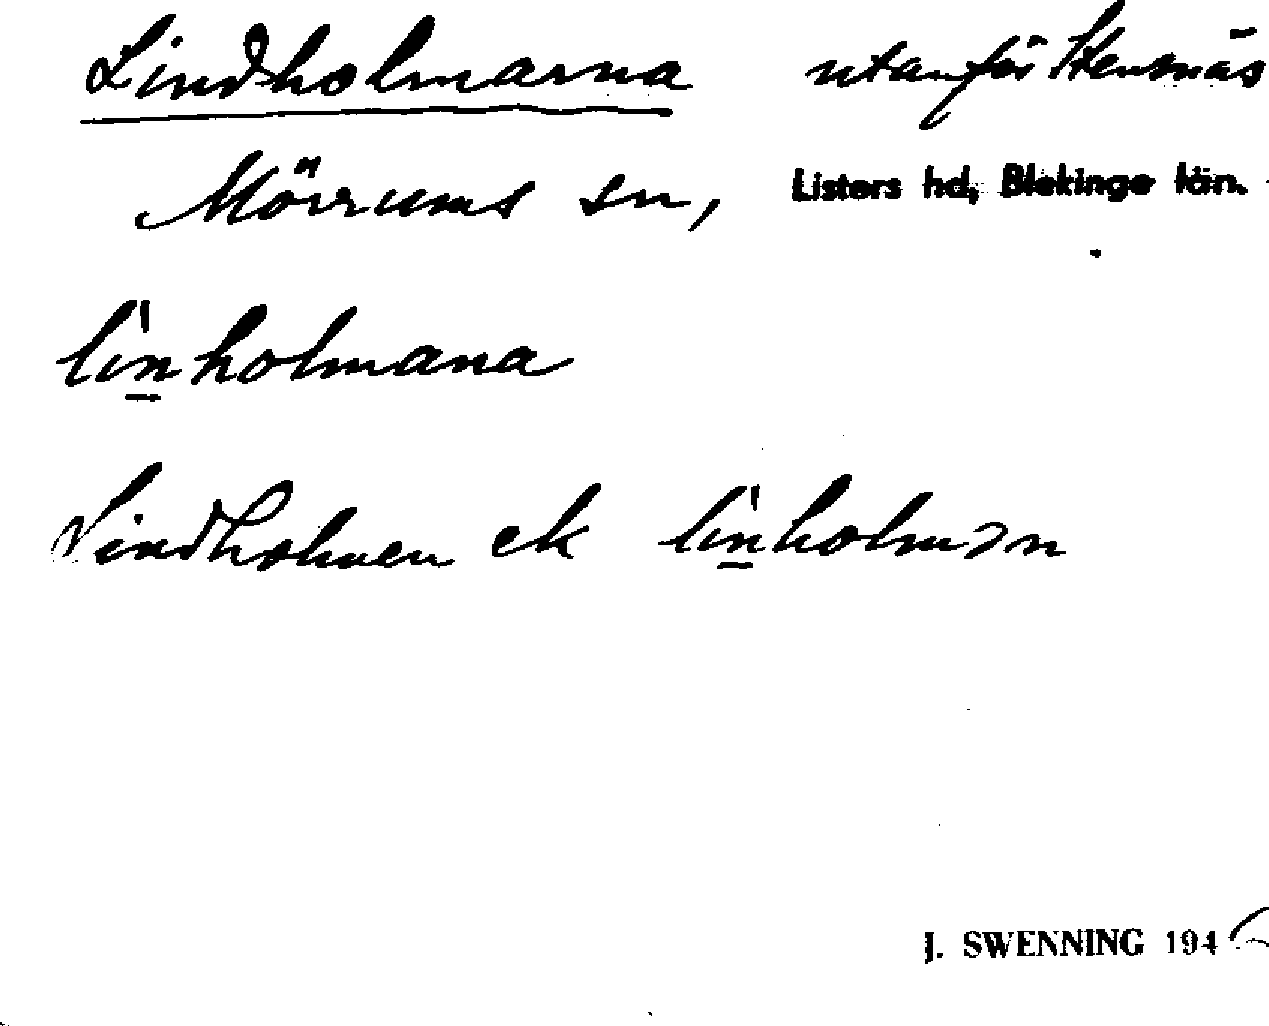 Lindholmarna utanför Stensnäs
Mörrums sn, Listers hd, Blekinge län.
li̍n̠holmana
Lindholmen ek li̍n̠holmən
J. SWENNING 1946